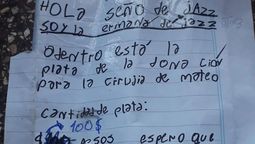 HOLA seño de jAzz
soy la ermana de jazz
adentro está la
plata de la dona ción
para la cirujia de mateo
cantidad de plata:
100$
pesos espero que